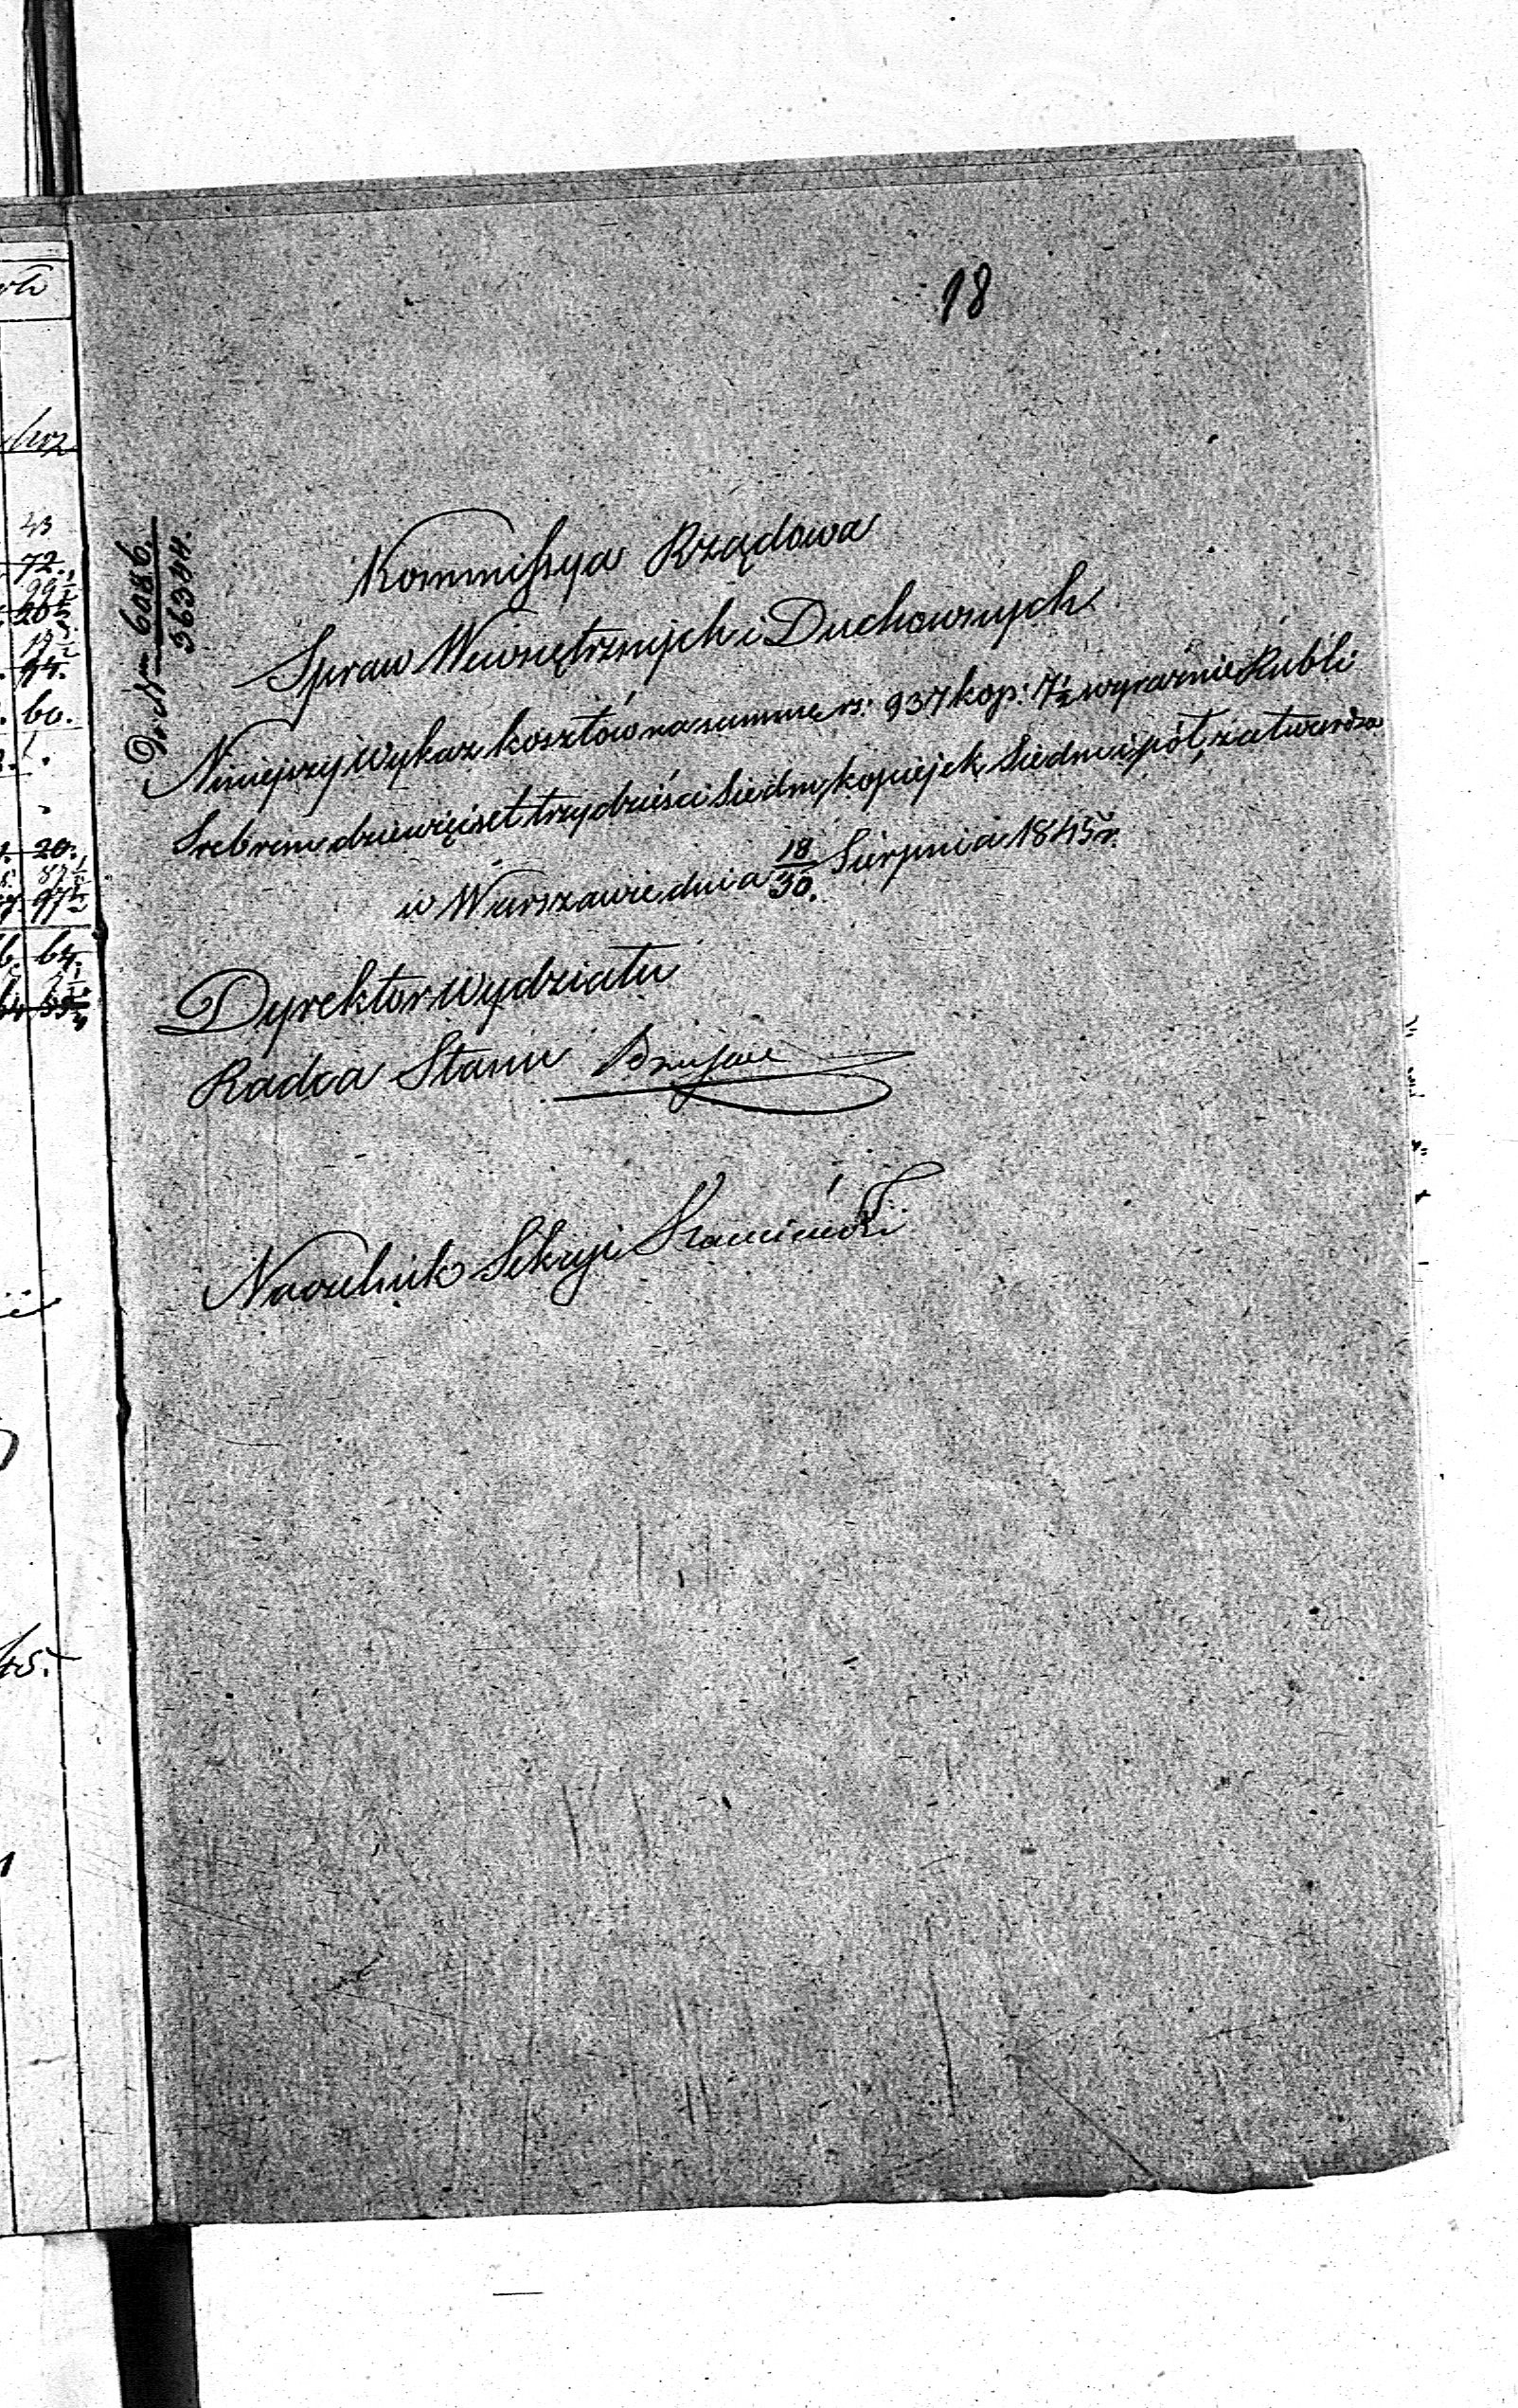 18
Do Nru 6086.
56344.
Kommissya Rządowa
Spraw Wewnętrznych i Duchownych
Niniejszy Wykaz kosztów na summę rs: 937 kop: 7½ wyraźnie Rubli
Srebrem dziewięćset trzydzieści siedm, kopiejek siedm i pół, zatwierdza
w Warszawie dnia 18/30. Sierpnia 1845 r.
Dyrektor Wydziału
Radca Stanu
Naczelnik Sekcyi
72.
60.
20.
64.